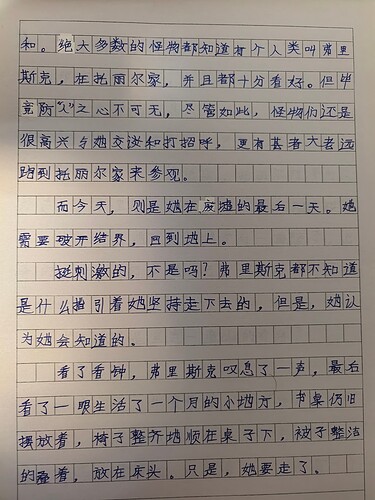 和。绝大多数的怪物都知道有个人类叫弗里
斯克，在托丽尔家，并且都十分看好。但毕
竟防“人”之心不可无，尽管如此，怪物们还是
很高兴与她交谈和打招呼，更有甚者大老远
跑到托丽尔家来参观。
而今天，则是她在废墟的最后一天。她
需要破开结界，回到地上。
挺刺激的，不是吗？弗里斯克都不知道
是什么指引着她坚持走下去的，但是，她认
为她会知道的。
看了看钟，弗里斯克叹息了一声，最后
看了一眼生活了一个月的小地方，书桌仍旧
摆放着，椅子整齐地顺在桌子下，被子整洁
的叠着，放在床头。只是，她要走了。